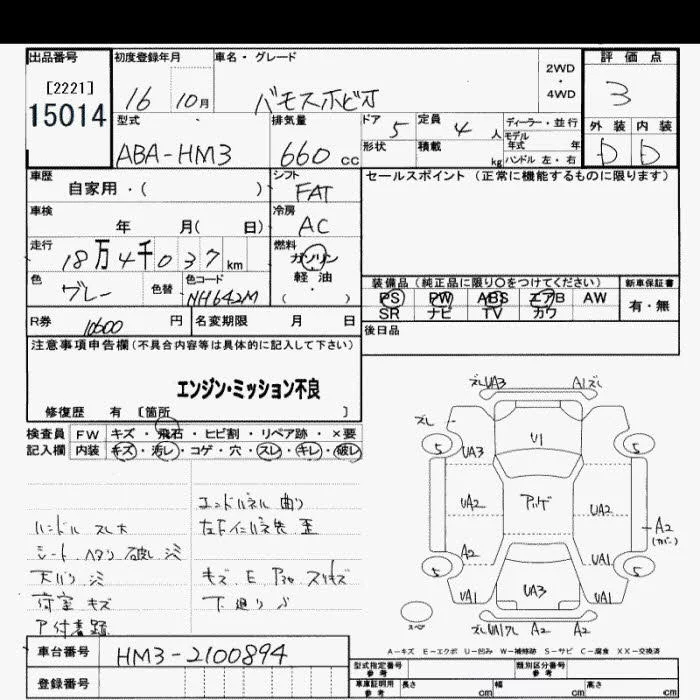 出品番号 初度登録年月 車名・グレード 評価点
[2221]
15014
16 10月 バモスホビオ 2WD・4WD 3
型式 排気量 ドア 5 定員 4人 ディーラー・並行 外装 内装
ABA-HM3 660cc 形状 積載 kg モデル年式 年 D D
ハンドル 左・右
車歴 シフト セールスポイント (正常に機能するものに限ります)
自家用・( ) FAT
車検 冷房
年 月( 日) AC
走行 燃料
18万4千037km ガソリン
軽油
・( )
色 グレー 色替 色コード NH642M
装備品(純正品に限り○をつけてください) 新車保証書
PS PW ABS エアB AW 有・無
SR ナビ TV カワ
R券 10600円 名変期限 月 日 後日品
注意事項申告欄(不具合内容等は具体的に記入して下さい)
エンジン・ミッション不良
修復歴 有 [箇所 ]
検査員 FW キズ・飛石・ヒビ割・リペア跡・×要
記入欄 内装 キズ・汚レ・コゲ・穴・スレ・キレ・破レ
エンドパネル 曲り
ハンドル スレ大
シート ヘタリ 破レ シミ
天バリ シミ
荷室 キズ
キズ E
下廻り
ズレUA3 A1ズレ
ズレ
5 UA3 U1 5
UA2 アゲ UA2
A2 A2
(カバー)
5 UA1 UA3 UA1 5
UA1 UA1
スペア
A2 A2
A-キズ E-エクボ U-凹み W-補修跡 S-サビ C-腐食 XX-交換済
車台番号 HM3-2100894
登録番号
型式指定番号 参考 類別区分番号 参考
車庫証明用 参考 長さ cm 幅 cm 高さ cm